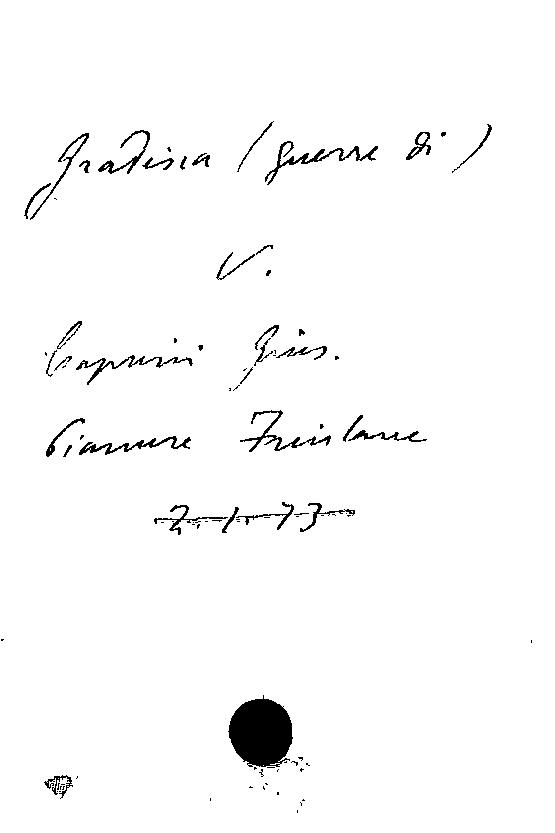 Gradisca (guerre di)
V.
Caprini Gius.
Pianure Friulane
2.1.73